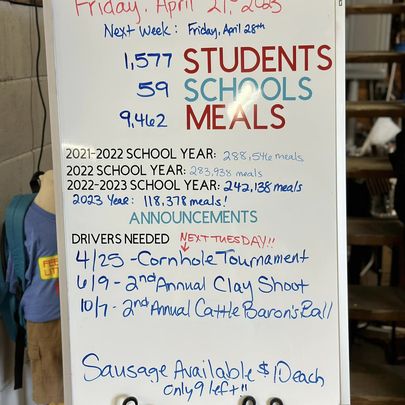 Friday, April 21, 2023
Next Week: Friday, April 28th
1,577 STUDENTS
59 SCHOOLS
9,462 MEALS
2021-2022 SCHOOL YEAR: 288,546 meals
2022 SCHOOL YEAR: 283,938 meals
2022-2023 SCHOOL YEAR: 242,138 meals
2023 Year: 118,378 meals!
ANNOUNCEMENTS
DRIVERS NEEDED NEXT TUESDAY!!
4/25 - Cornhole Tournament
6/9 - 2nd Annual Clay Shoot
10/7 - 2nd Annual Cattle Baron's Ball
Sausage Available $10 each
Only 9 left!!